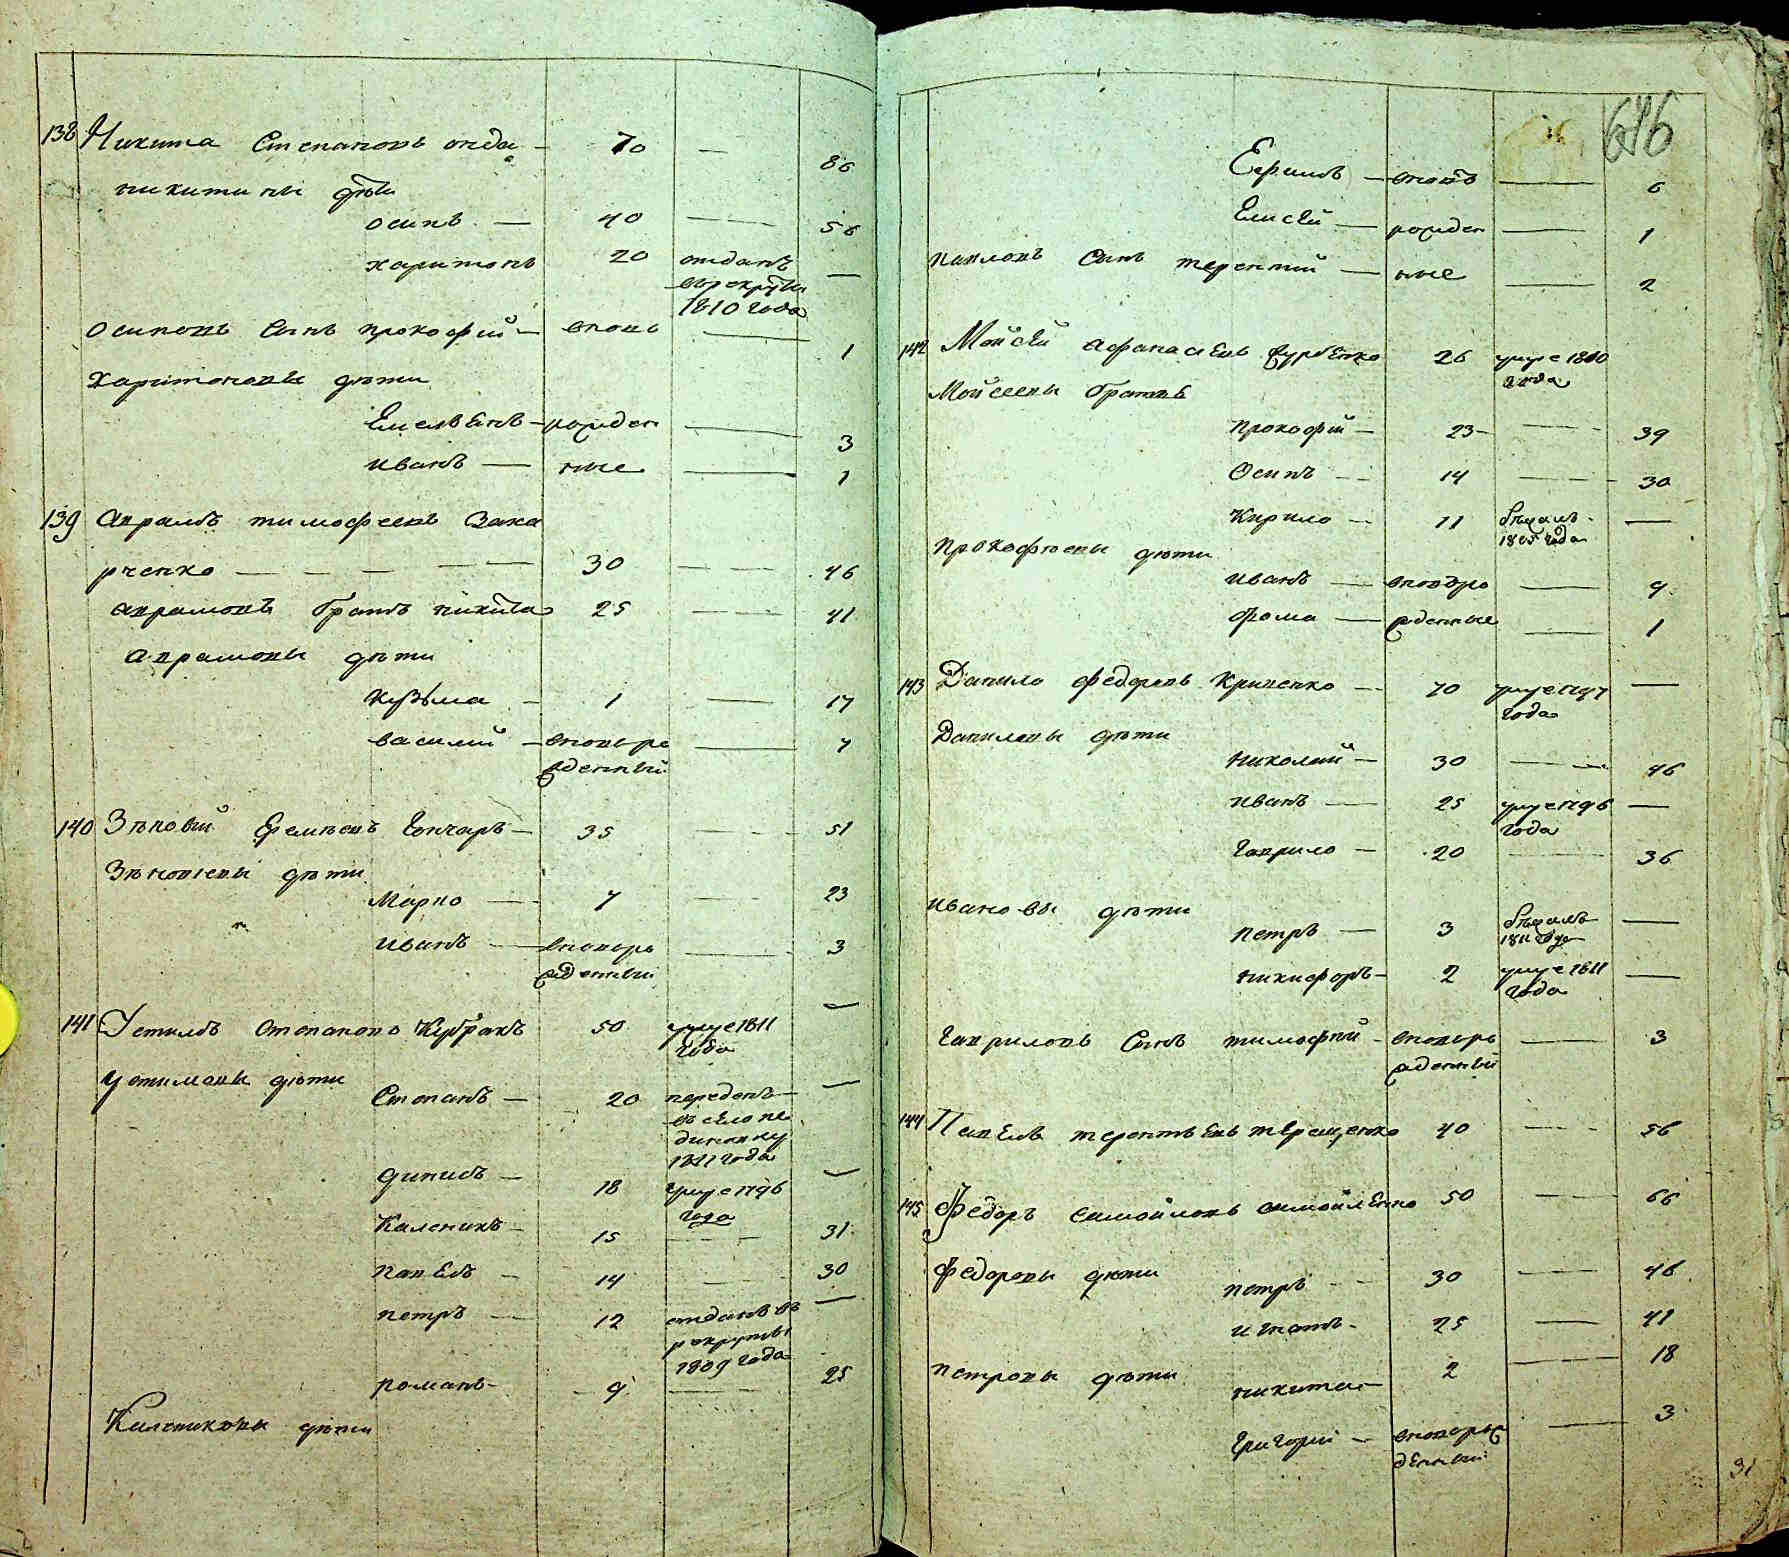 138 Никита Степановъ 70 — 86
никитины дѣти
осипъ — 40 — 56
харитонъ 20 отданъ —
въ рекруты
1810 года
осиповъ сынъ прокофий — вновь — 1
Харитоновы дѣти
Емельянъ — рожден — 3
иванъ — ные — 1
139 Аврамъ тимофеевъ Заха
рченко — 30 — 46
аврамовъ братъ никита 25 — 41
Аврамовы дѣти
кузьма — 1 — 17
василий — вновьро — 4
жденный
140 Зѣновий Еремѣевъ Гончаръ — 35 — 51
Зѣновиевы дѣти
Марко — 7 — 23
иванъ — вновьро — 3
жденный
141 Устимъ Степановъ Кубракъ 50 умре 1811 —
года
устимовы дѣти
Степанъ — 20 переведенъ —
въ село
1811 года
динисъ — 18 умре 1796 —
года
Каленикъ — 15 — 31
павелъ — 14 — 30
петръ — 12 отданъ въ —
рекруты
1809 года
романъ — 9 — 25
Калениковы дѣти
646
Ефимъ — вновь — 6
Елисей — рожден — 1
павловъ сынъ терентий — ные — 2
142 Мойсей афанасьевъ 26 умре 1800
года
Мойсеевы братья
прокофий — 23 — 39
Осипъ — 14 — 30
Кирило — 11 бѣжалъ —
1805 года
прокофьевы дѣти
иванъ — вновьро — 4
фома — жденные — 1
143 Данило федоровъ Кривенко — 70 умре 1797 —
года
Даниловы дѣти
николай — 30 — 46
иванъ — 25 умре 1796 —
года
Гаврило — 20 — 36
ивановы дѣти
петръ — 3 бѣжалъ —
1811 года
никифоръ — 2 умре 1811 —
года
Гавриловъ сынъ тимофей — вновьро — 3
жденный
144 Павелъ терентьевъ терещенко 40 — 56
145 Федоръ самойловъ самойленко 50 — 66
Федоровы дѣти
петръ — 30 — 46
игнатъ — 25 — 41
петровы дѣти
никита — 2 — 18
Григорий — вноворож — 3
денный
31